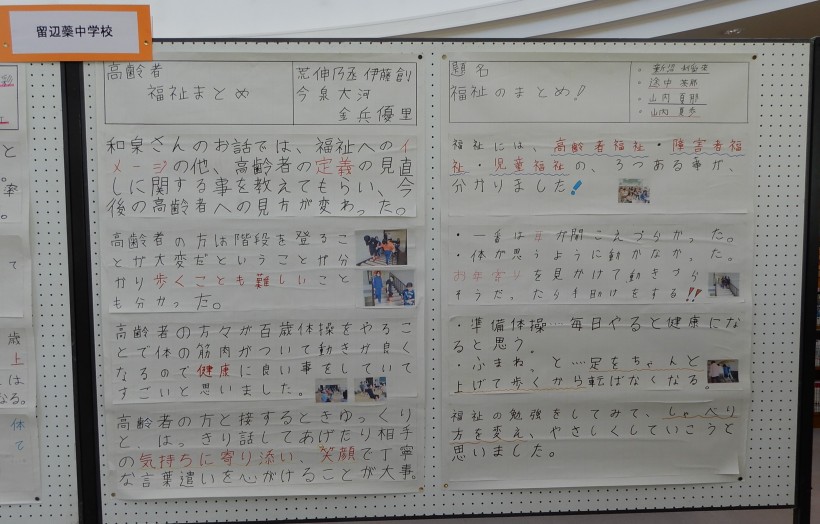 留辺蘂中学校
高齢者
福祉まとめ
荒伸乃丞 伊藤創
今泉大河
金兵優里
和泉さんのお話では、福祉へのイ
メージの他、高齢者の定義の見直
しに関する事を教えてもらい、今
後の高齢者への見方が変わった。
高齢者の方は階段を登るこ
とが大変だということが分
かり歩くことも難しいこと
も分かった。
高齢者の方々が百歳体操をやるこ
とで体の筋肉がついて動きが良く
なるので健康に良い事をしていて
すごいと思いました。
高齢者の方と接するときゆっくり
と、はっきり話してあげたり相手
の気持ちに寄り添い、笑顔で丁寧
な言葉遣いを心がけることが大事。
題名
福祉のまとめ!
山内
山内
福祉には、高齢者福祉・障害者福
祉・児童福祉の、3つある事が、
分かりました!
・一番は耳が聞こえづらかった。
・体が思うように動かなかった。
お年寄りを見かけて動きづら
そうだったら手助けをする!!
・準備体操…毎日やると健康にな
ると思う。
・ふまねっと…足をちゃんと
上げて歩くから転ばなくなる。
福祉の勉強をしてみて、しゃべり
方を変え、やさしくしていこうと
思いました。